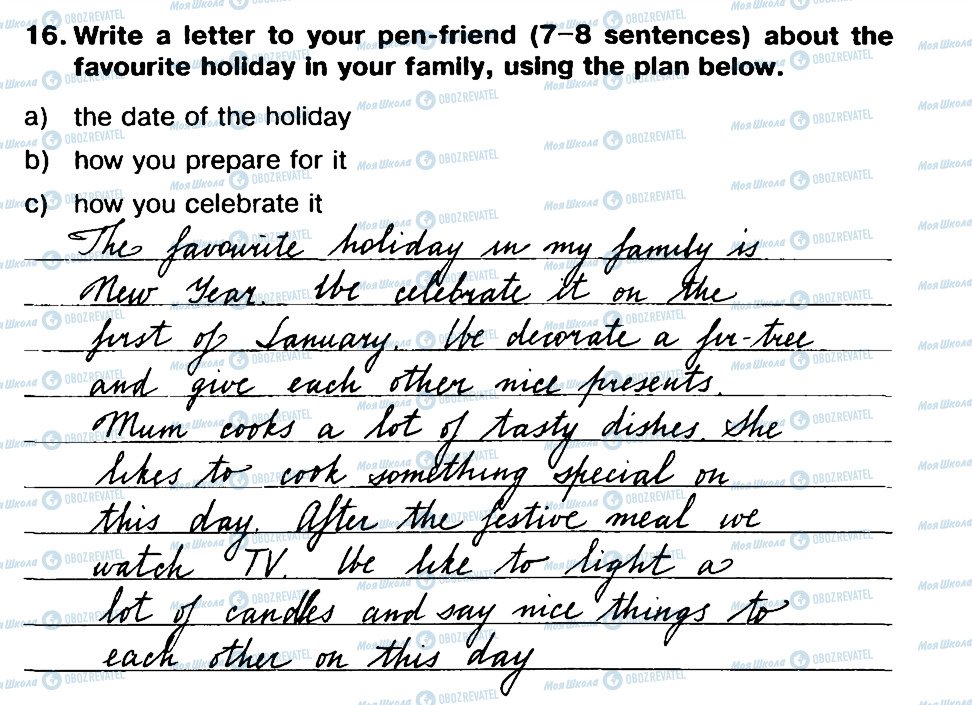 16. Write a letter to your pen-friend (7–8 sentences) about the
favourite holiday in your family, using the plan below.
a) the date of the holiday
b) how you prepare for it
c) how you celebrate it
The favourite holiday in my family is
New Year. We celebrate it on the
first of January. We decorate a fir-tree
and give each other nice presents.
Mum cooks a lot of tasty dishes. She
likes to cook something special on
this day. After the festive meal we
watch TV. We like to light a
lot of candles and say nice things to
each other on this day